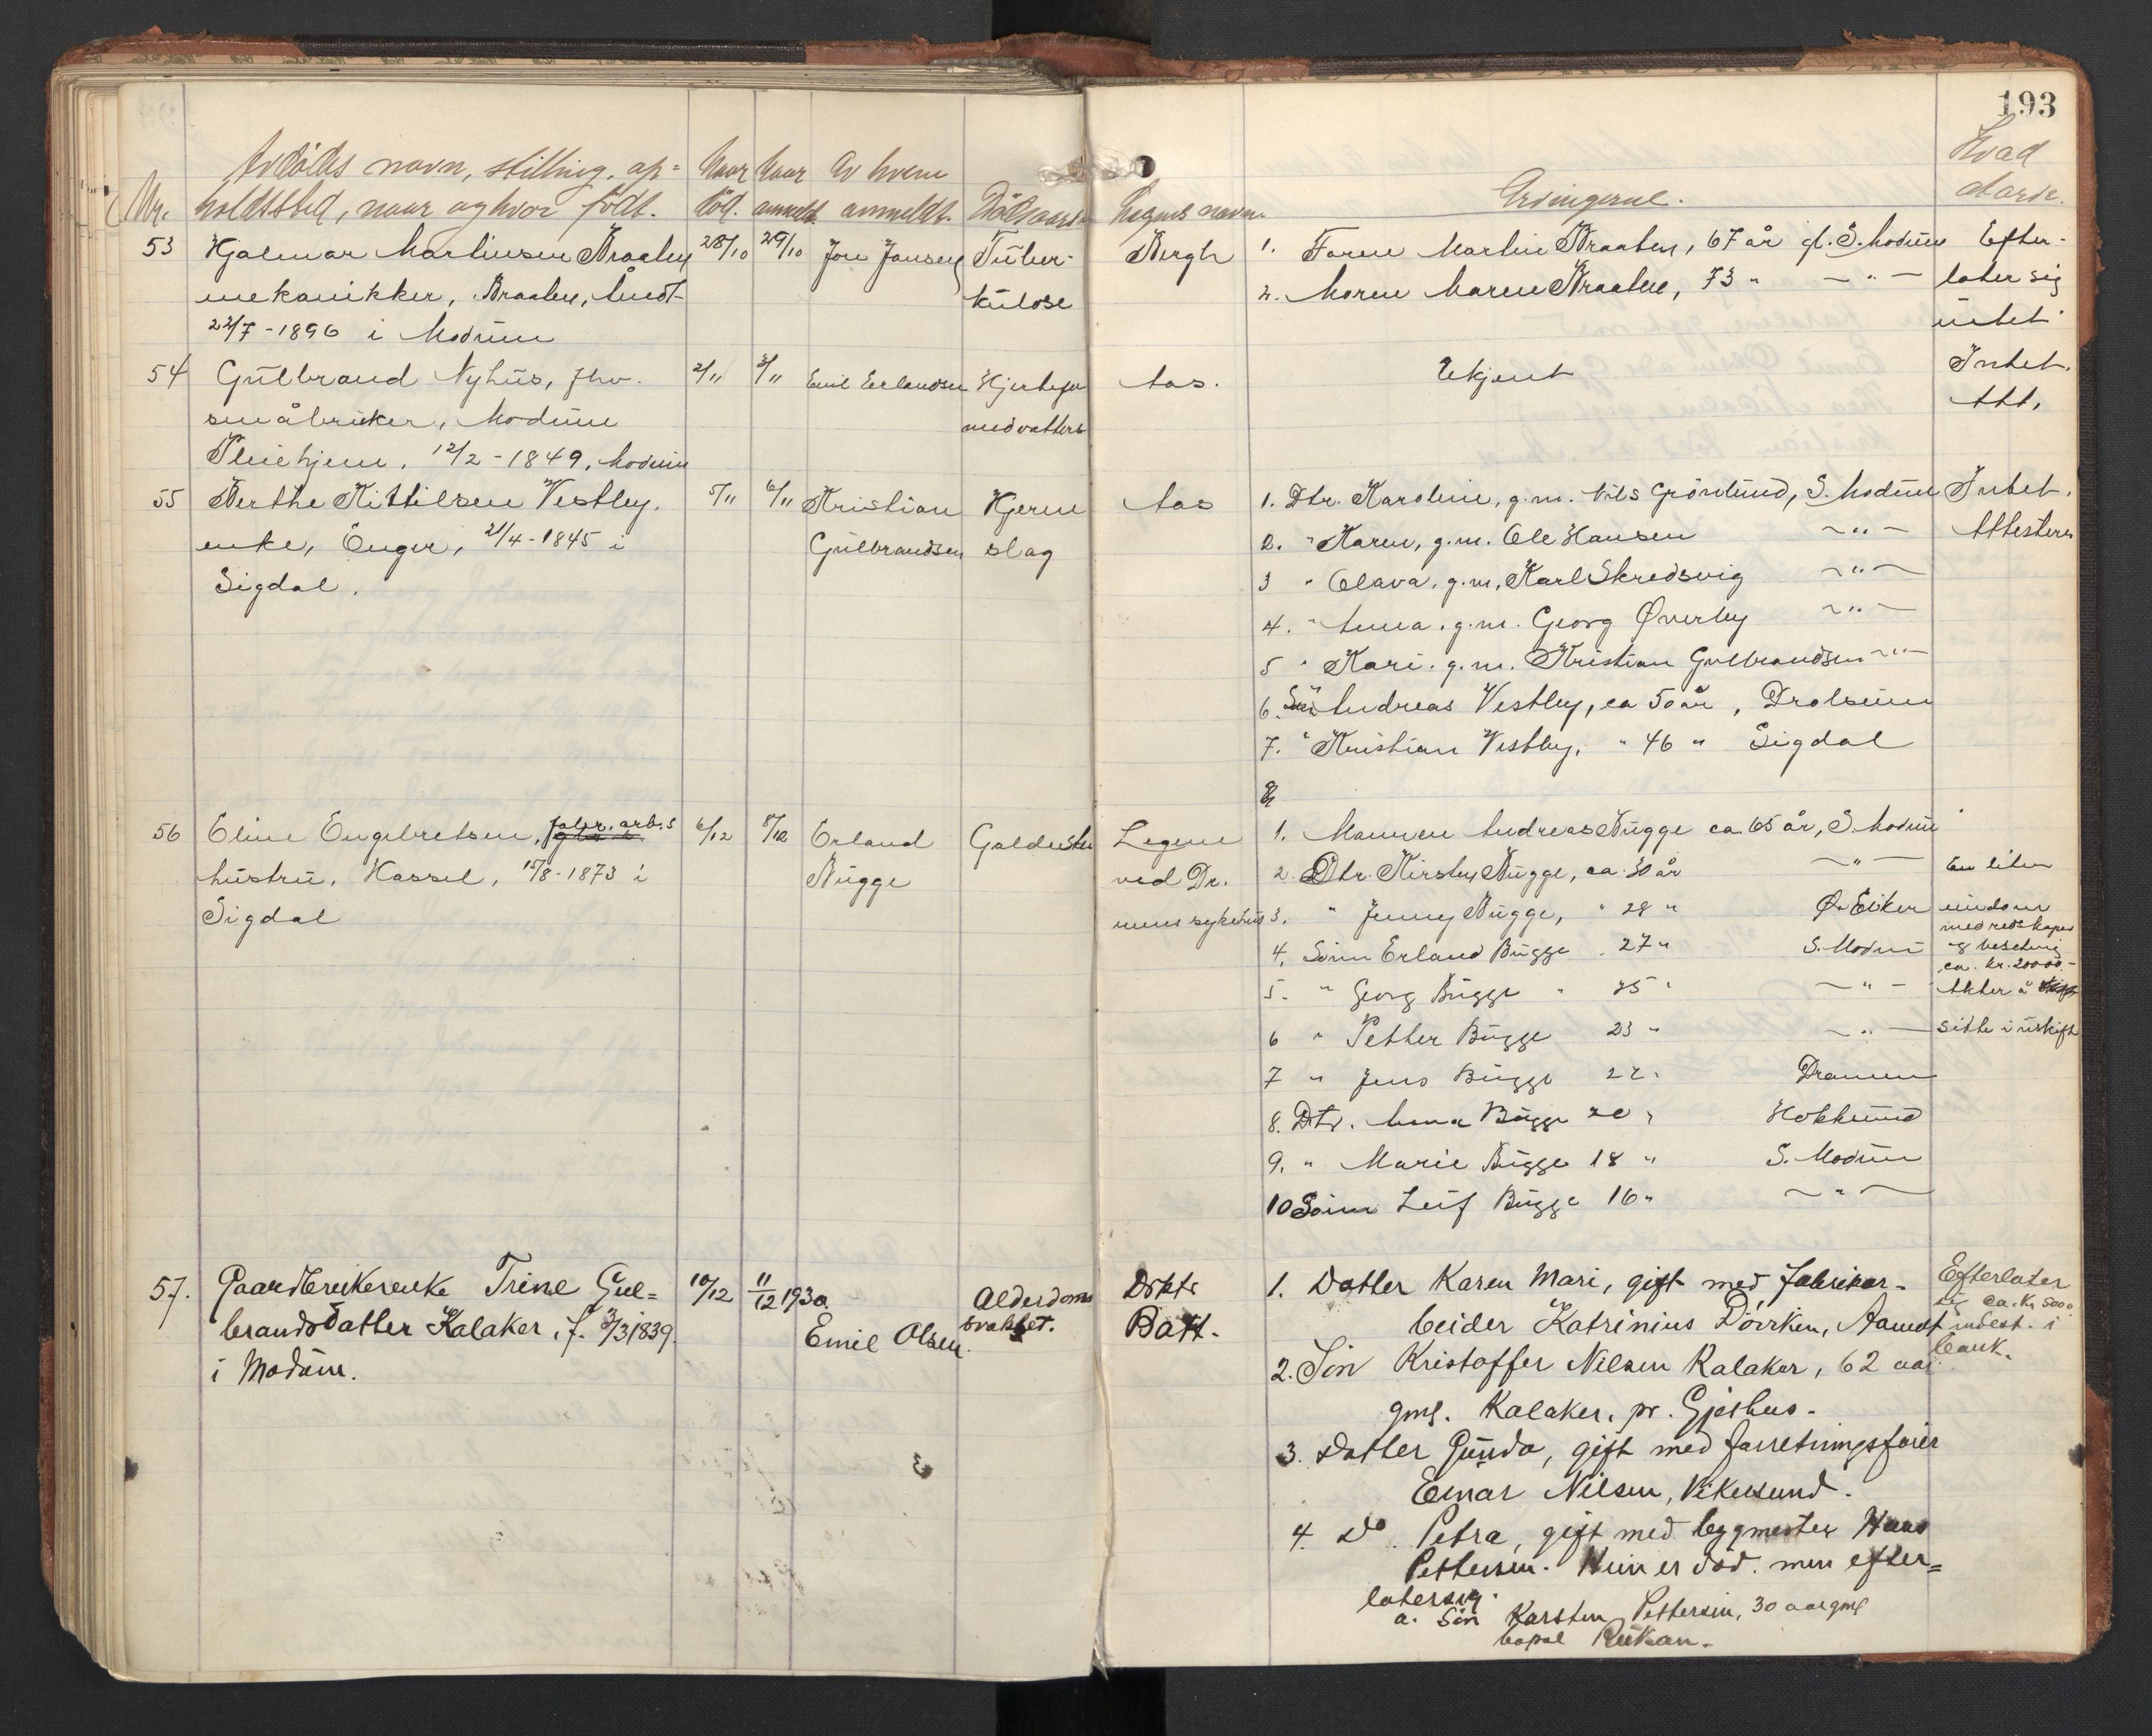 193
Nr.
Avdødes navn, stilling, op=
holdssted, naar og hvor født.
Naar
død.
Naar
anmeldt.
Av hvem
anmeldt.
Dødsaarsak
Lægens navn.
Arvingerne.
Hvad
53 Hjalmar Martinsen Braaten
mekanikker, Braaten, Åmot
22/7-1896 i Modum
28/10 29/10
Tuber-
kulose
Bergh
1. Faren Martin Braaten, 67 år gl. S. Modum
2. Moren Maren Braaten, 73 " — " —
Efter-
later sig
intet
54 Gulbrand Nyhus, fhv.
småbruker, Modum
Pleiehjem. 12/2-1849. Modum
2/11 3/11 Emil Erlandsen
Aas.
Ukjent
Intet.
Att.
55 Berthe Kittilsen Vestby.
enke, Enger, 21/4-1845 i
Sigdal.
5/11 6/11 Kristian
Gulbrandsen
Hjerne
slag
Aas
1. Dtr. Karoline, g.m. Nils Grönlund, S. Modum
2. " Karen, g.m. Ole Hansen — " —
3 " Olava. g.m. Karl Skredsvig — " —
4. " Anna. g.m. Georg Øverby — " —
5 " Kari. g.m. Kristian Gulbrandsen — " —
6. Sön Andreas Vestby, ca 50 år, Drolsum
7. " Kristian Vestby, " 46 " Sigdal
8
Intet.
Attesteres
56 Eline Engebretsen, fabr. arb.s
hustru, Hassel, 15/8-1873 i
Sigdal
6/12 8/12 Erland
Bugge
Galdesten
Legene
ved Dr.
mens sykehus
1. Mannen Andreas Bugge ca. 65 år, S. Modum
2. Dtr. Kirsten Bugge, ca. 30 år — " —
3. " Jenny Bugge, " 28 " Ø. Eiker
4. Sönn Erland Bugge " 27 " S. Modum
5. " Georg Bugge " 25 " — " —
6 " Petter Bugge 23 " — " —
7 " Jens Bugge 22 " Drammen
8. Dtr. Anna Bugge 20 " Hokksund
9. " Marie Bugge 18 " S. Modum
10 Sönn Leif Bugge 16 " — " —
En liten
eiendom
med redskaper
og besetning
ca. kr. 20000.-
Akter å
sitte i uskifte
57. Gaardbrukerenke Trine Gul=
brandsdatter Kalaker, f. 3/3 1839.
i Modum.
10/12 11/12 1930.
Emil Olsen.
Alderdoms
svakhet.
Doktor
Batt.
1. Datter Karen Mari, gift med fabrikar-
beider Katrinius Dövrken, Aamot
2. Sön Kristoffer Nilsen Kalaker, 62 aar
gml. Kalaker, pr. Gjethus.
3. Datter Gunda, gift med forretningsförer
Einar Nilsen, Vikersund.
4. Do Petra, gift med byggmester Hans
Pettersen. Hun er död. men efter=
latersig.
a. Sön Karsten Pettersen, 30 aar gml
bopæl Rukan.
Efterlater
sig ca. Kr 5000
indest. i
bank.